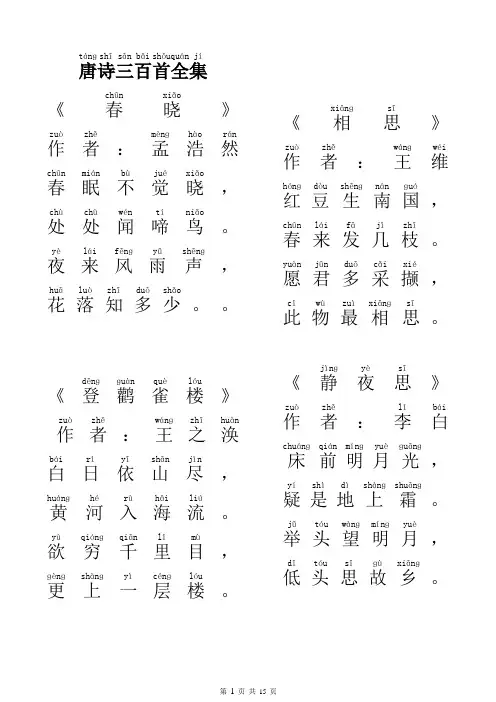 táng shī sān bǎi shǒu quán jí
唐诗三百首全集
chūn xiǎo
《春晓》
zuò zhě mèng hào rán
作者：孟浩然
chūn mián bù jué xiǎo
春眠不觉晓，
chù chù wén tí niǎo
处处闻啼鸟。
yè lái fēng yǔ shēng
夜来风雨声，
huā luò zhī duō shǎo
花落知多少。。
dēng guàn què lóu
《登鹳雀楼》
zuò zhě wáng zhī huàn
作者：王之涣
bái rì yī shān jìn
白日依山尽，
huáng hé rù hǎi liú
黄河入海流。
yù qióng qiān lǐ mù
欲穷千里目，
gèng shàng yì céng lóu
更上一层楼。
xiāng sī
《相思》
zuò zhě wáng wéi
作者：王维
hóng dòu shēng nán guó
红豆生南国，
chūn lái fā jǐ zhī
春来发几枝。
yuàn jūn duō cǎi xié
愿君多采撷，
cǐ wù zuì xiāng sī
此物最相思。
jìng yè sī
《静夜思》
zuò zhě lǐ bái
作者：李白
chuáng qián míng yuè guāng
床前明月光，
yí shì dì shàng shuāng
疑是地上霜。
jǔ tóu wàng míng yuè
举头望明月，
dī tóu sī gù xiāng
低头思故乡。
第 1 页 共 15 页